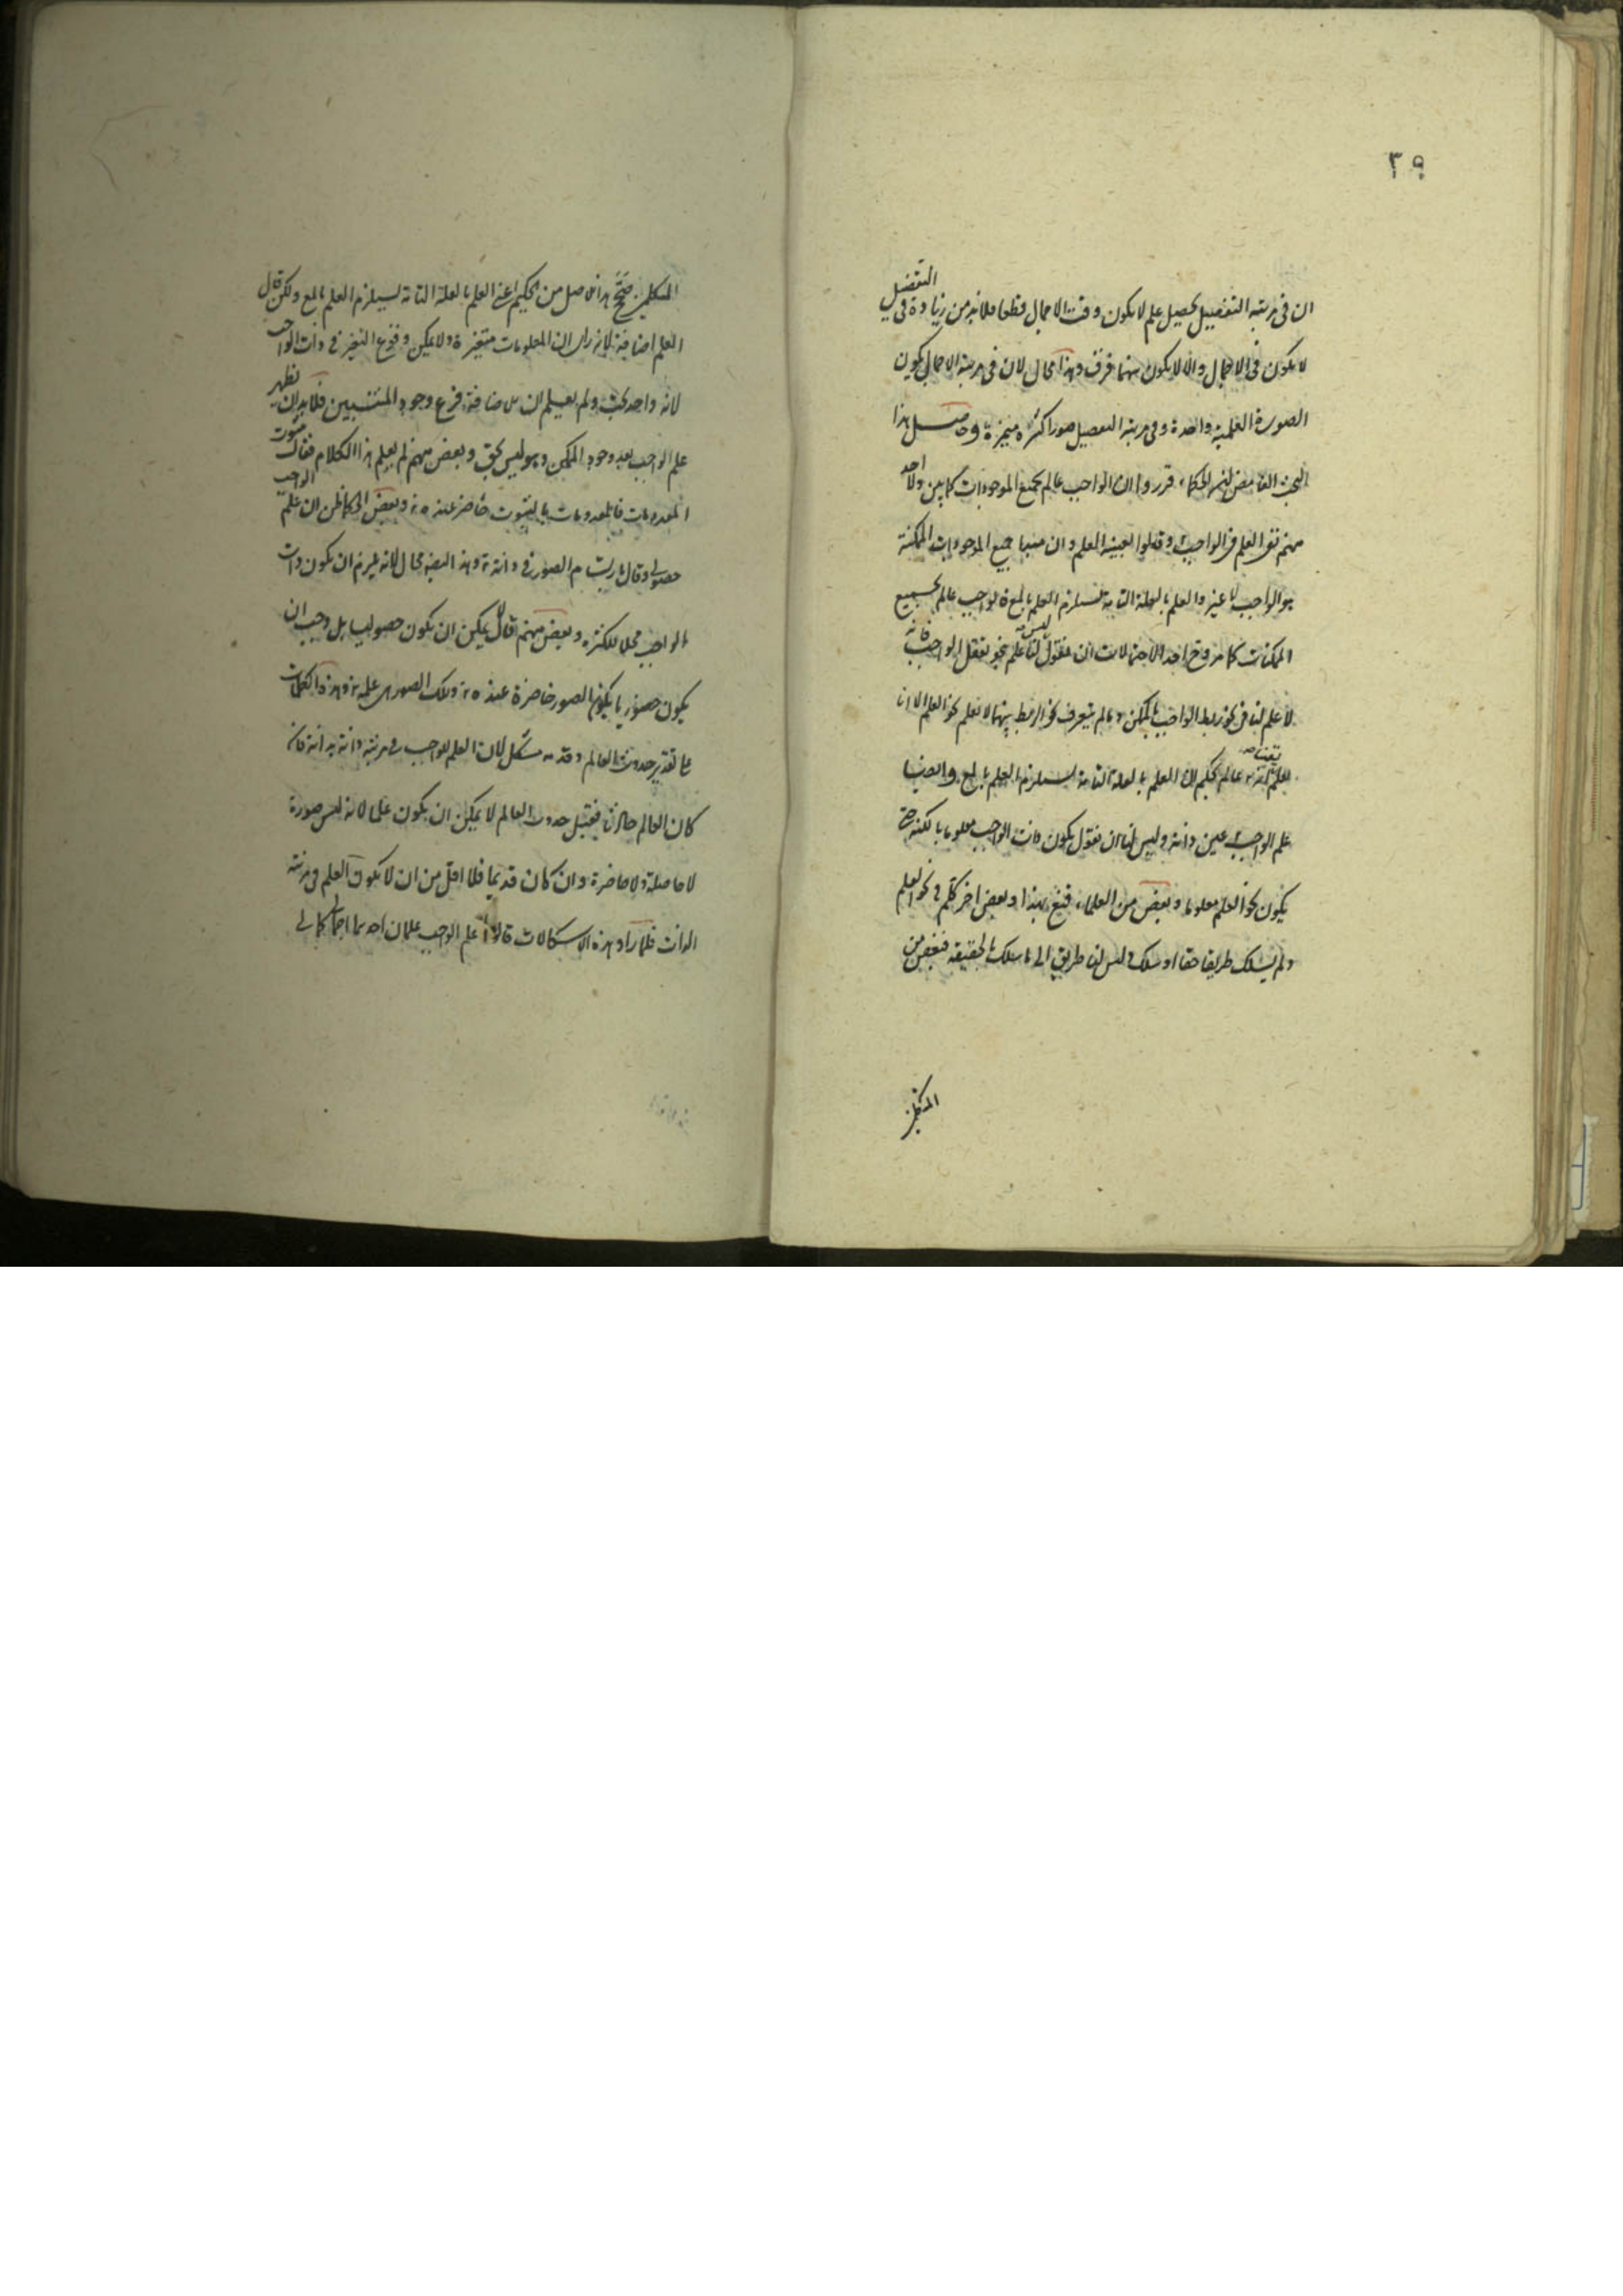 ٣٩
ان فى مرتبة التفصيل يحصل علم لا يكون وقت الاجمال قطعا فلا بد من زيادة فى التفصيل
لا يكون فى الاجمال والا لا يكون بينهما فرق وهذا محال لان فى مرتبة الاجمال يكون
الصورة العلمية واحدة وفى مرتبة التفصيل صورا كثيرة متميزة وحاصل هذا
البحث الغامض ان الحكماء قرروا ان الواجب عالم بجميع الموجودات كما بين ولا احد
منهم نفى العلم من الواجب وقالوا لعينية العلم وان منبع جميع الموجودات الممكنة
هو الواجب لا غير والعلم بالعلة التامة يستلزم العلم بالمع فالواجب عالم بجميع
الممكنات كما مر وح احد الاحتمالات ان نقول ليس لنا علم بنحو تعقل الواجب فانه
لا علم لنا فى نحو ربط الواجب بالممكن وما لم يتعرف نحو الربط بينهما لا نعلم نحو العلم الا ان
نعلم يقينا انه عالم بحكم ان العلم بالعلة التامة يستلزم العلم بالمع وايضا
علم الواجب عين ذاته وليس لنا ان نقول يكون ذات الواجب معلوما بالكنه حتى
يكون نحو العلم معلوما وبعض من العلماء قنع بهذا وبعض اخر تكلم فى نحو العلم
ولم يسلك طريقا حقا او سلك وليس لنا طريق الى ما سلك بالحقيقة فبعض من
المتكلمين
المتكلمين صحح هذا الاصل من الحكيم اعنى العلم بالعلة التامة يستلزم العلم بالمع ولكن قال
العلم اضافة لانه راى ان المعلومات متغيرة ولا يمكن وقوع التغير فى ذات الواجب
لانه واحد بحت ولم يعلم ان الاضافة فرع وجود المنتسبين فلا بد ان يظهر
علم الواجب بعد وجود الممكن وهو ليس بحق وبعض منهم لم يعلم هذا الكلام فقال بثبوت
المعدومات فالمعدومات بالثبوت حاضر عنده تع وبعض الحكماء ظن ان علم الواجب
حصولى وقال بارتسام الصور فى ذاته تع وهذا ايضا محال لانه يلزم ان يكون ذات
الواجب محلا للكثرة وبعض منهم قال لا يمكن ان يكون حصوليا بل وجب ان
يكون حضوريا بكون الصور حاضرة عنده تع وتلك الصور علمه تع وهذا الكلمات
على تقدير حدوث العالم وقدمه مشكل لان العلم للواجب فى مرتبة ذاته بذاته فان
كان العالم حادثا فقبل حدوث العالم لا يمكن ان يكون علما لانه ليس صورة
لا حاصلة ولا حاضرة وان كان قديما فلا اقل من ان لا يكون العلم فى مرتبة
الذات فلما راو هذه الاشكالات قالوا علم الواجب علمان احدهما اجمالى كمالى